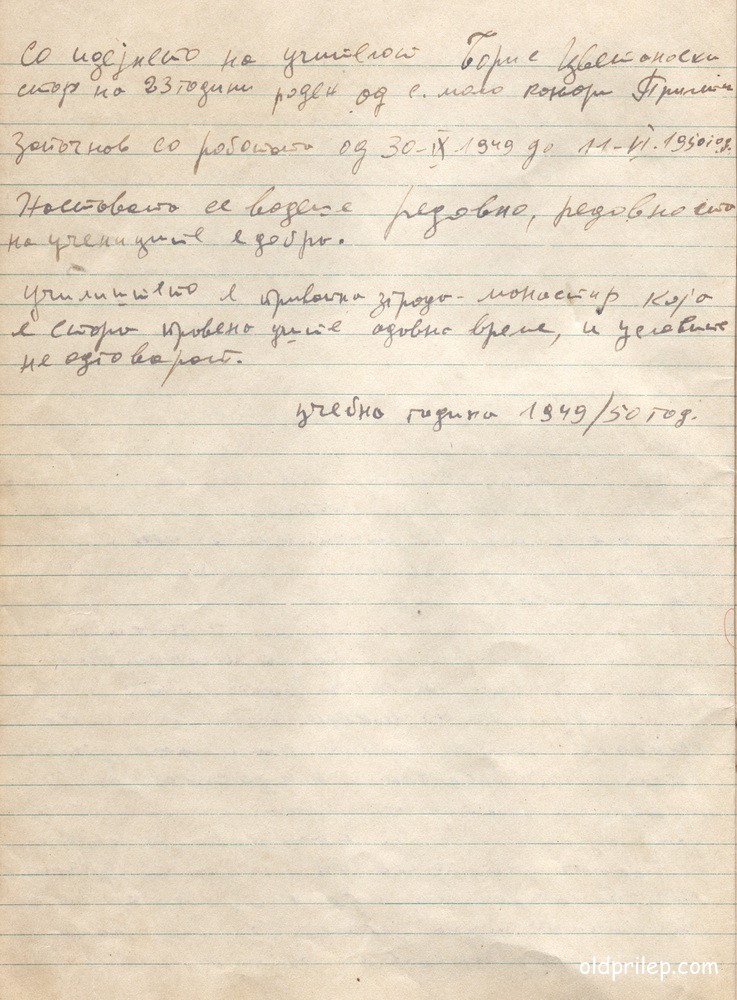 Со идејнето на учителот Борис Цветаноски
стар на 23 години роден од с. мало коњари Прилеп
Започнав со работата од 30-IX 1949 до 11-VI. 1950 год.
Наставата се водеше редовно, редовноста
на учениците е добра.
училиштето е приватна зграда - монастир која
е стара правена уште одовна време, и условите
не одговорат.
учебна година 1949/50 год.
oldprilep.com